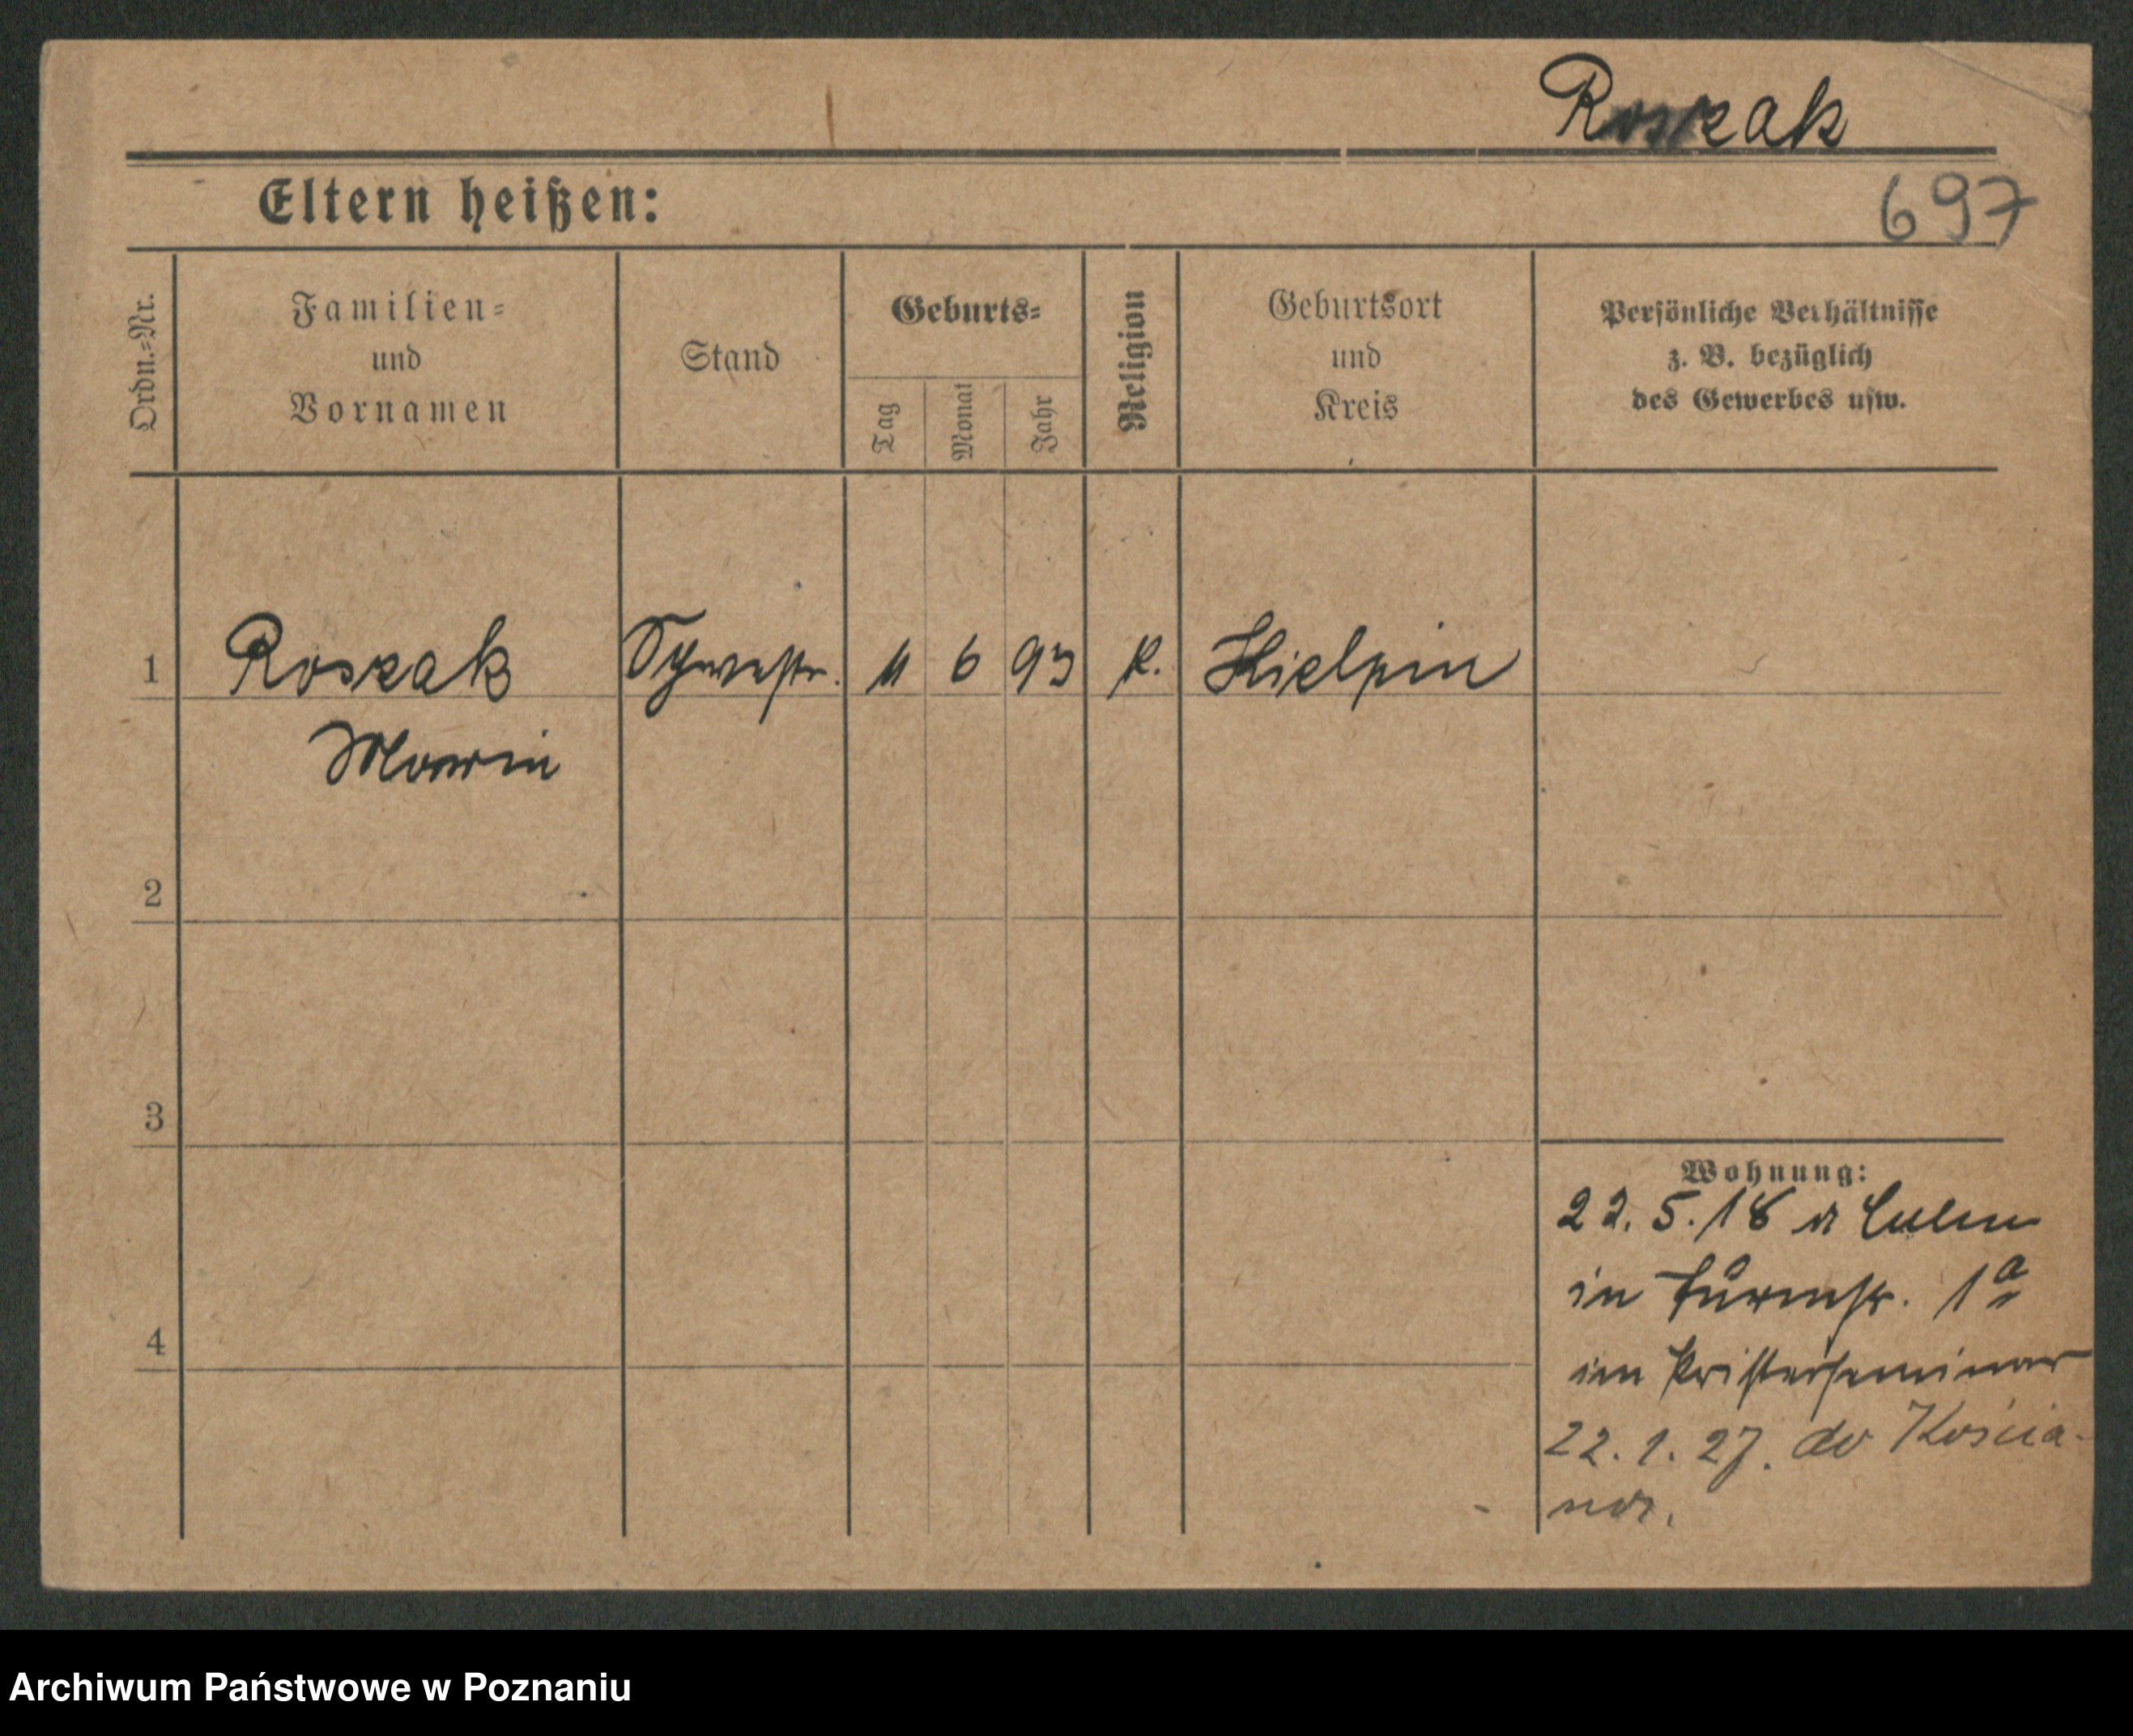 Roszak
Eltern heißen:
697
Ordn.-Nr.
Familien-
und
Vornamen
Stand
Geburts-
Tag
Monat
Jahr
Religion
Geburtsort
und
Kreis
Persönliche Verhältnisse
z. B. bezüglich
des Gewerbes usw.
1
Roszak
Schwestr.
11
6
93
K.
Kielpin
2
3
Wohnung:
22. 5. 18 Culm
in 1a
im Pristerseminar
4
22. 1. 27. do Kościa-
na.
Archiwum Państwowe w Poznaniu